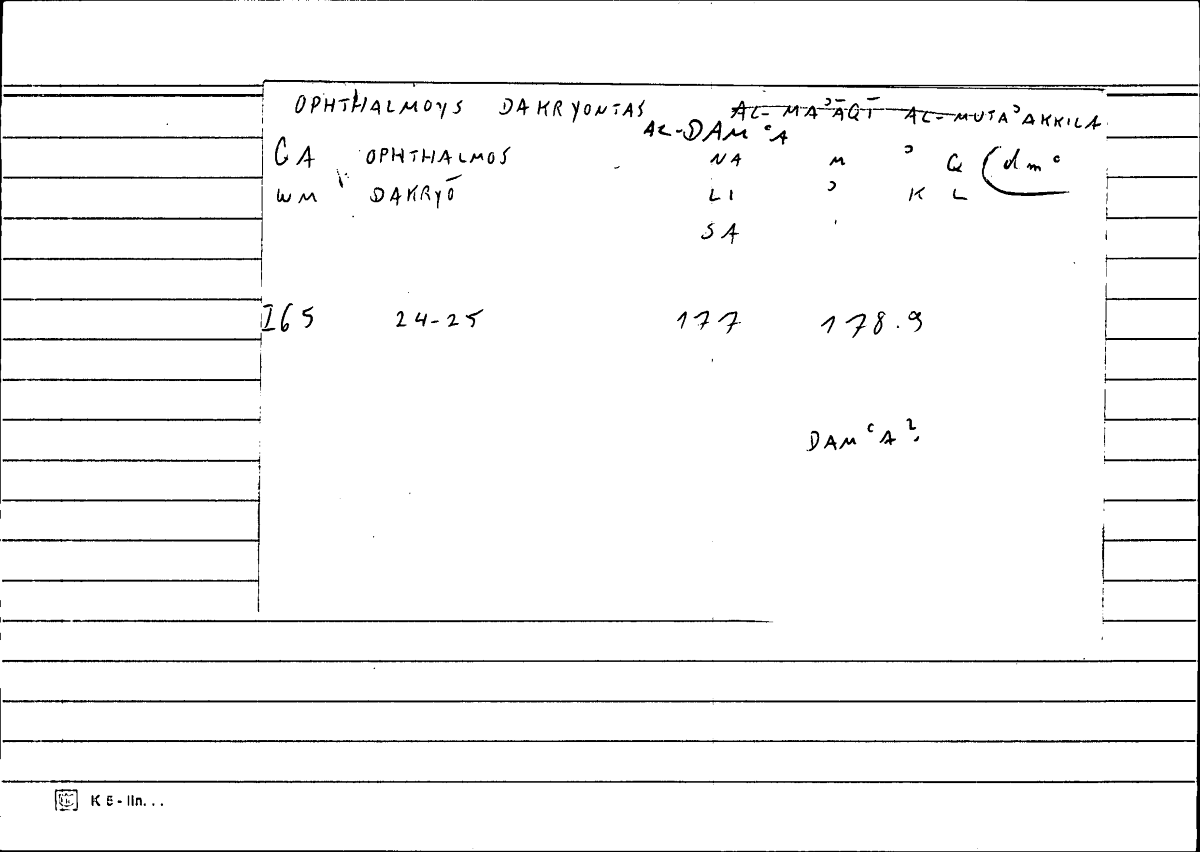 OPHTHALMOYS DAKRYONTAS AL-MAʾĀQĪ AL-MUTAʾAKKILA
AL-DAMʿA
GA OPHTHALMOS NA M ʾ Q (dmʿ
WM DAKRYŌ LI ʾ K L
SA
I65 24-25 177 178.9
DAMʿA?
K 5 - lin...